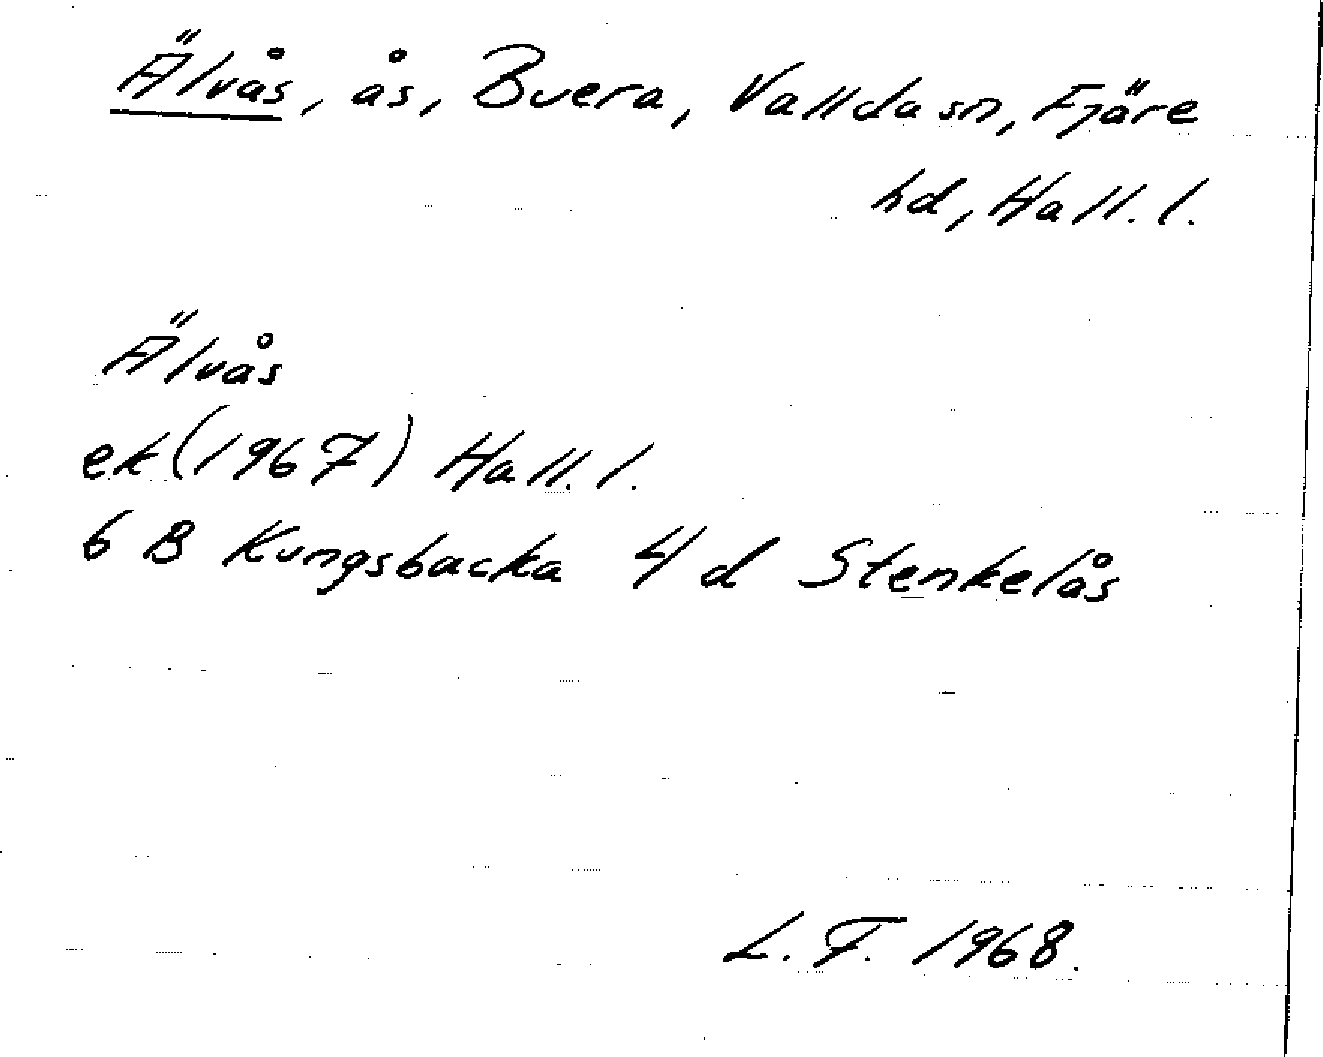 Älvås, ås, Buera, Vallda sn, Fjäre
hd, Hall. l.
Älvås
ek (1967) Hall. l.
6 B Kungsbacka 4 d Stenkelås
L. F. 1968.